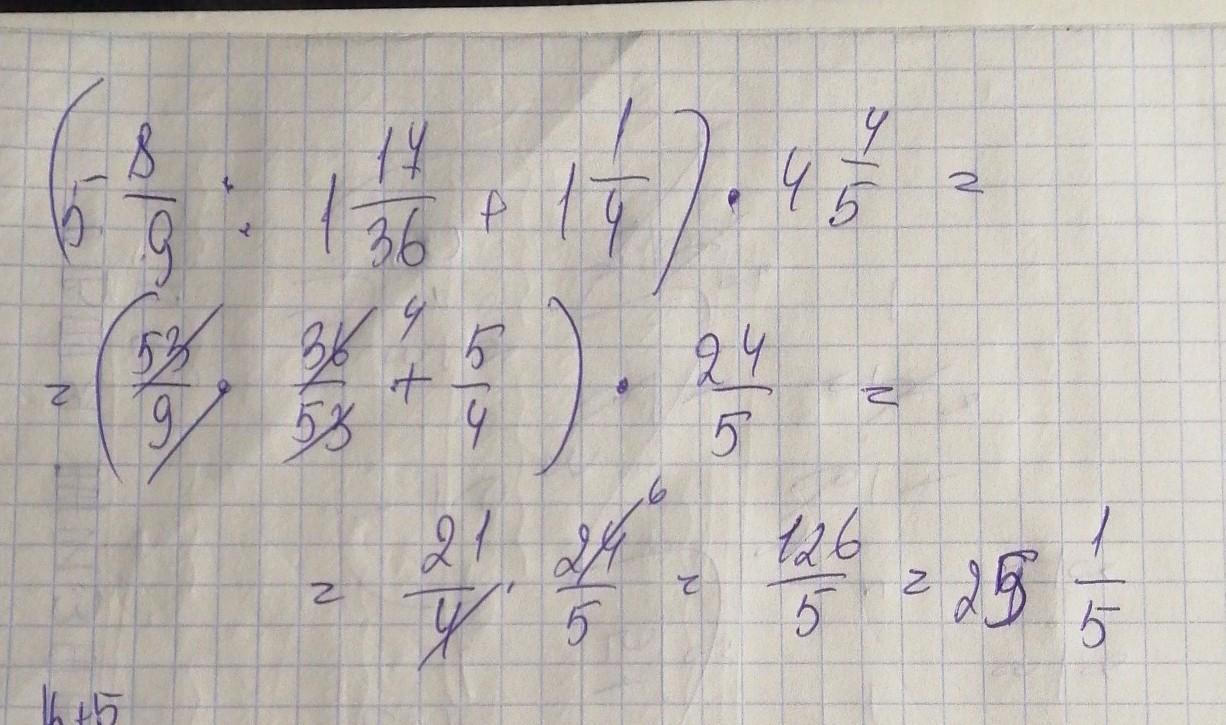 (5 8/9 : 1 17/36 + 1 1/4) · 4 4/5 =
= (53/9 · 36/53 4 + 5/4) · 24/5 =
= 21/4 · 24/5 6 = 126/5 = 25 1/5
16+5